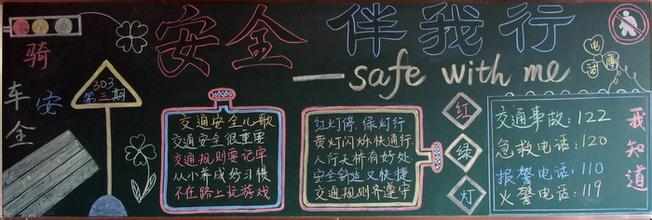 安全伴我行
safe with me
骑车安全
303
第三期
交通安全儿歌
交通安全很重要
交通规则要记牢
从小养成好习惯
不在路上玩游戏
红灯停,绿灯行
黄灯闪烁快通行
人行天桥有好处
安全到达又快捷
交通规则齐遵守
红
绿
灯
电话
交通事故:122
急救电话:120
报警电话:110
火警电话:119
我知道